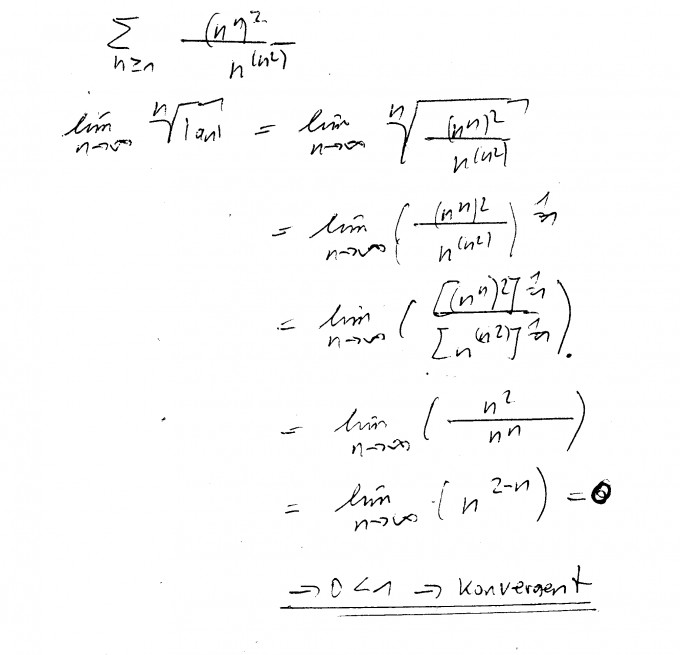 ∑_{n≥1} (n^n)^2 / n^(n^2)
lim_{n→∞} ⁿ√|an| = lim_{n→∞} ⁿ√((n^n)^2 / n^(n^2))
= lim_{n→∞} ((n^n)^2 / n^(n^2))^(1/n)
= lim_{n→∞} ([(n^n)^2]^(1/n) / [n^(n^2)]^(1/n)).
= lim_{n→∞} (n^2 / n^n)
= lim_{n→∞} (n^(2-n)) = 0
→ 0 < 1 → Konvergent